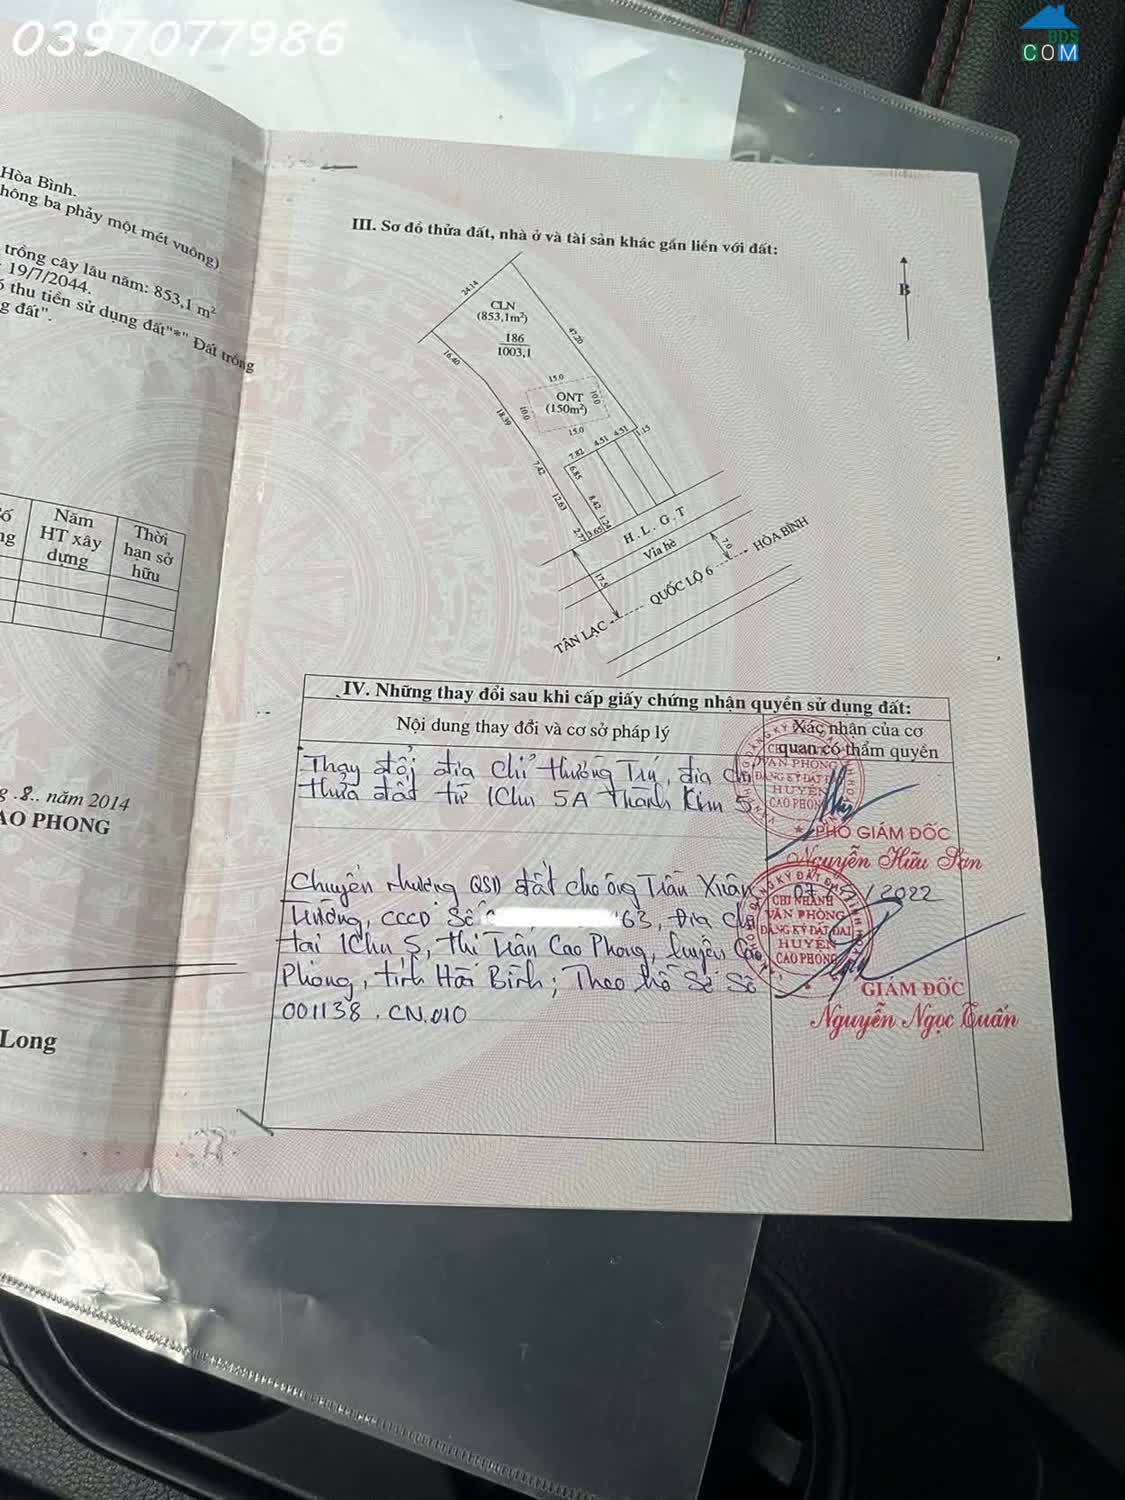 0397077986
BDS
COM
Hòa Bình.
hông ba phảy một mét vuông)
trồng cây lâu năm: 853,1 m²
19/7/2044.
ó thu tiền sử dụng đất"*" Đất trồng
g đất".
III. Sơ đồ thửa đất, nhà ở và tài sản khác gắn liền với đất:
B
24.14
CLN
(853,1m²)
47.20
186
1003,1
16.40
15.0
ONT
(150m²)
10.0
10.0
15.0
18.39
4.51
4.51
1.15
7.82
6.85
7.42
8.42
12.63
1.24
2.77
3.65
H.L.G.T
Vỉa hè
7.0
HÒA BÌNH
17.5
QUỐC LỘ 6
TÂN LẠC
ố
ng
Năm
HT xây
dựng
Thời
hạn sở
hữu
IV. Những thay đổi sau khi cấp giấy chứng nhận quyền sử dụng đất:
Nội dung thay đổi và cơ sở pháp lý
Xác nhận của cơ
quan có thẩm quyền
Thay đổi địa chỉ thường trú, địa chỉ
thửa đất từ Khu 5A thành Khu 5
VĂN PHÒNG
ĐĂNG KÝ ĐẤT ĐAI
HUYỆN
CAO PHONG
PHÓ GIÁM ĐỐC
Nguyễn Hữu Sơn
Chuyển nhượng QSD đất cho ông Trần Xuân
Trường, CCCD Số 63, Địa chỉ
tại Khu 5, thị Trấn Cao Phong, huyện Cao
Phong, tỉnh Hòa Bình; Theo hồ Sơ Số
001138.CN.010
2022
CHI NHÁNH
VĂN PHÒNG
ĐĂNG KÝ ĐẤT ĐAI
HUYỆN
CAO PHONG
GIÁM ĐỐC
Nguyễn Ngọc Tuấn
g .8.. năm 2014
AO PHONG
Long